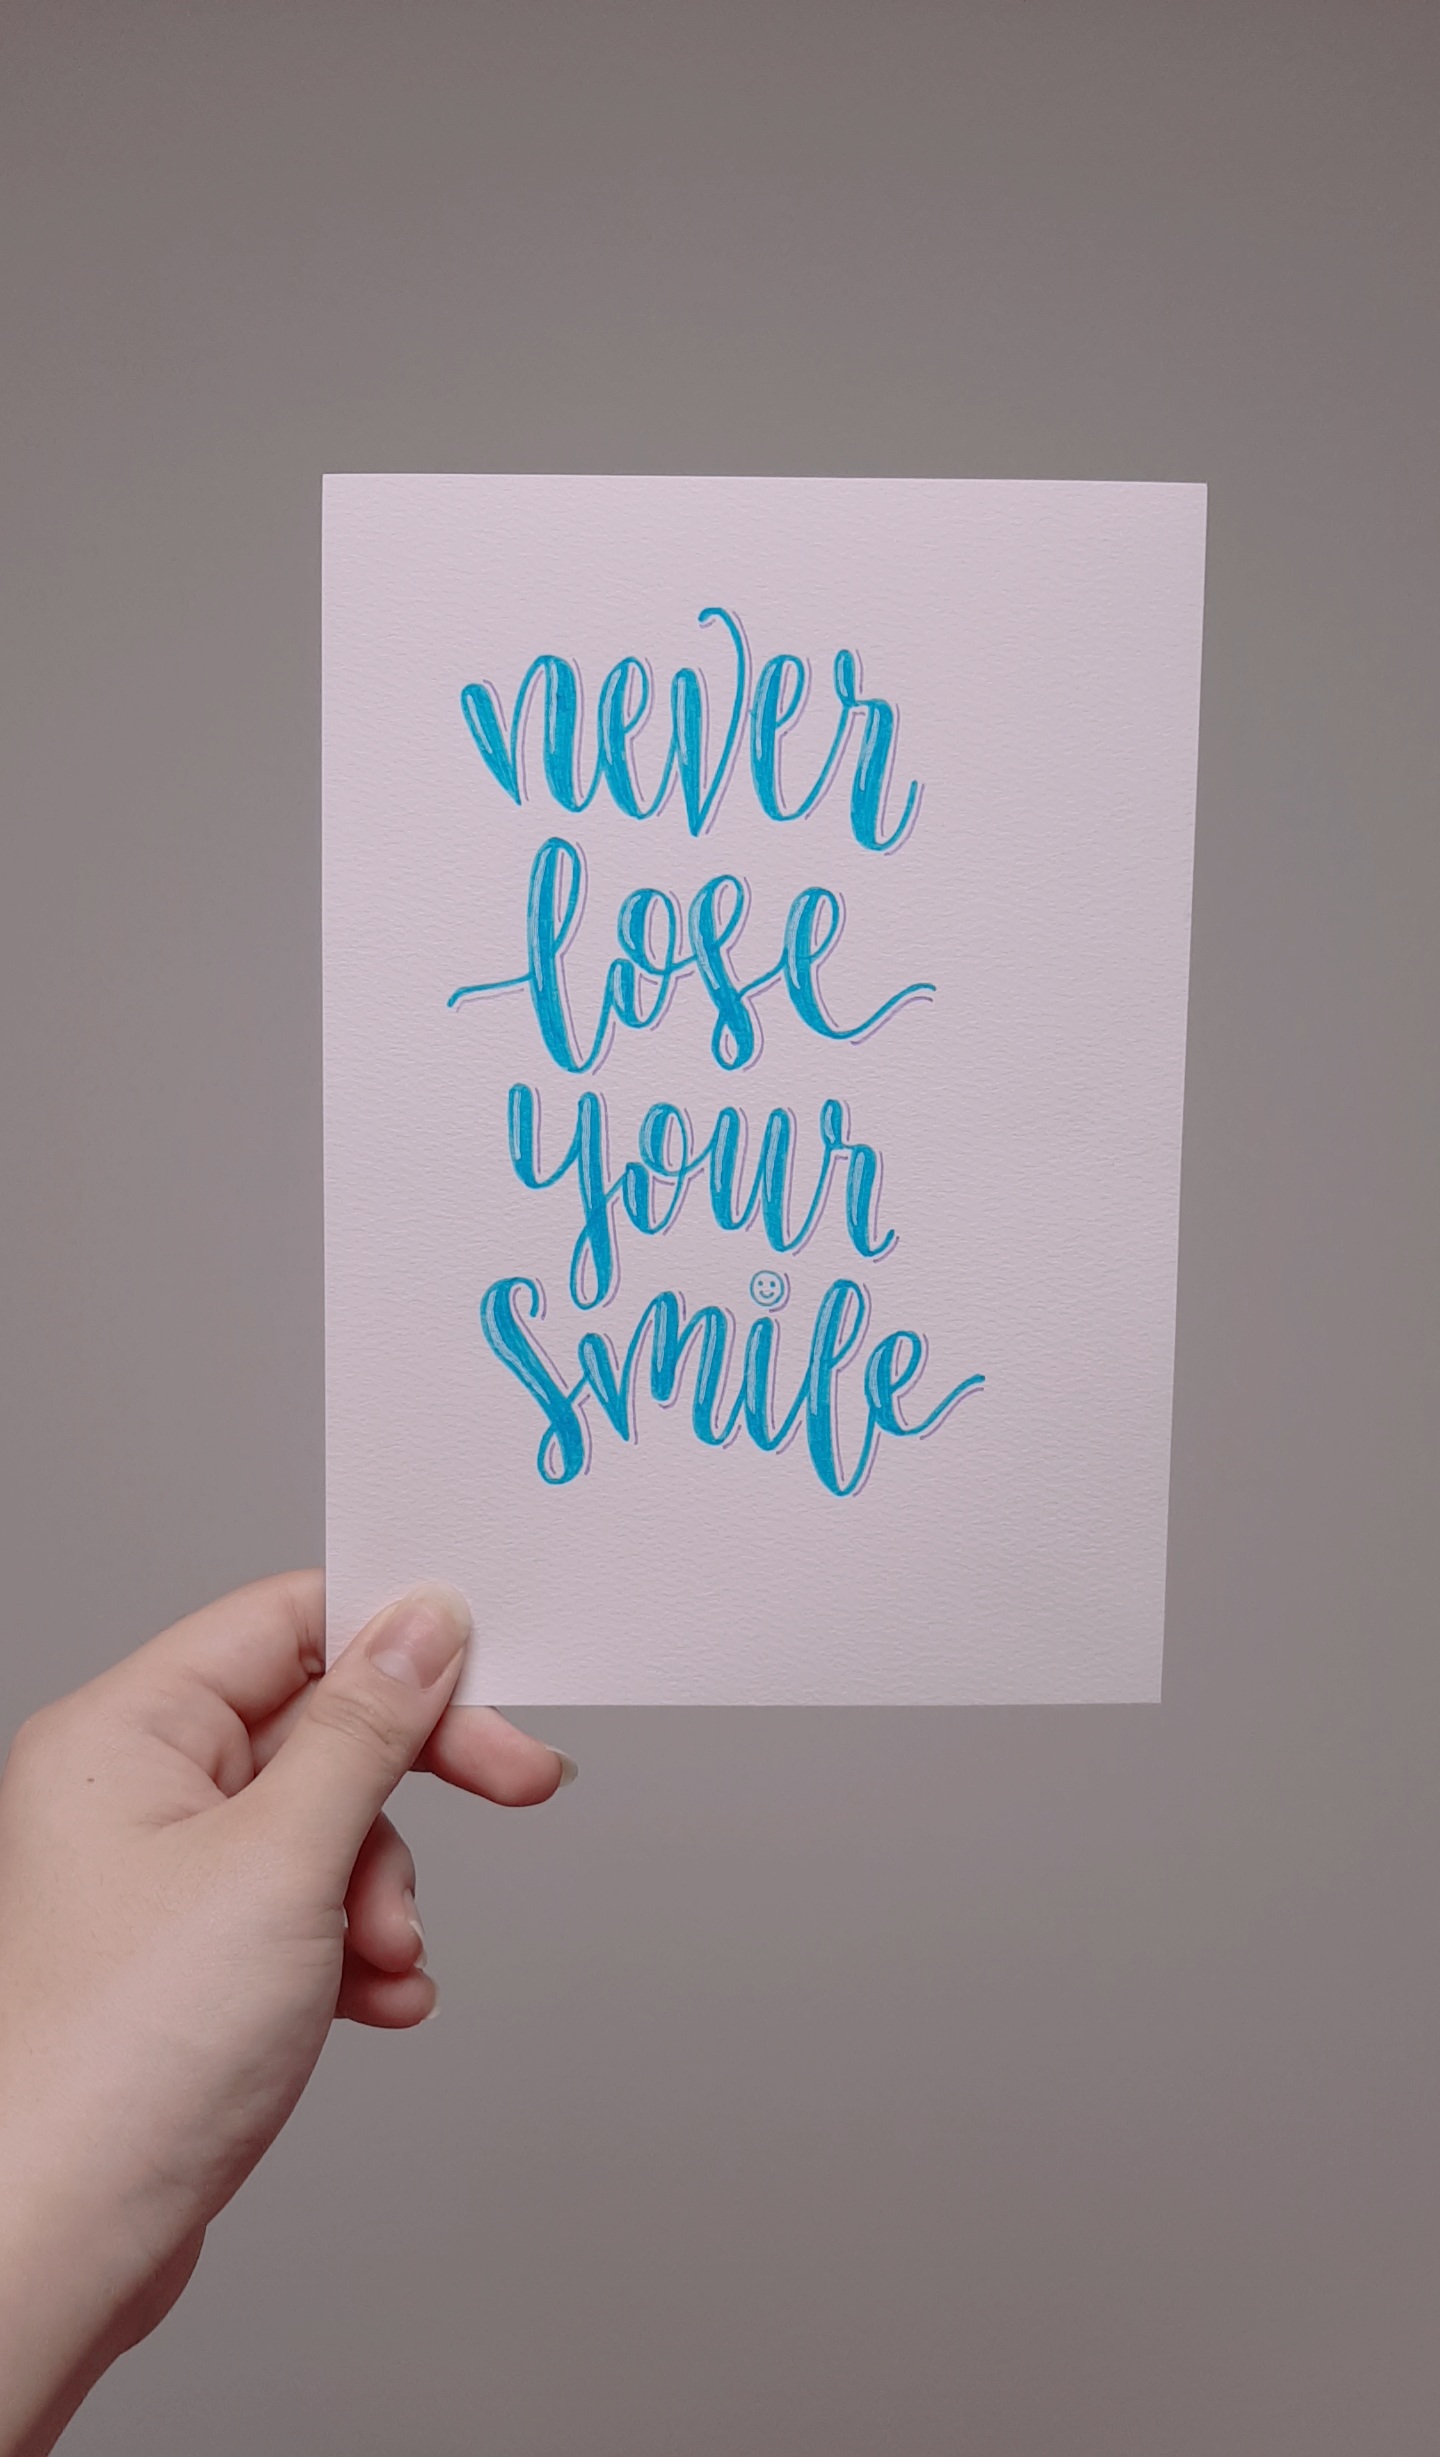 never
lose
your
smile